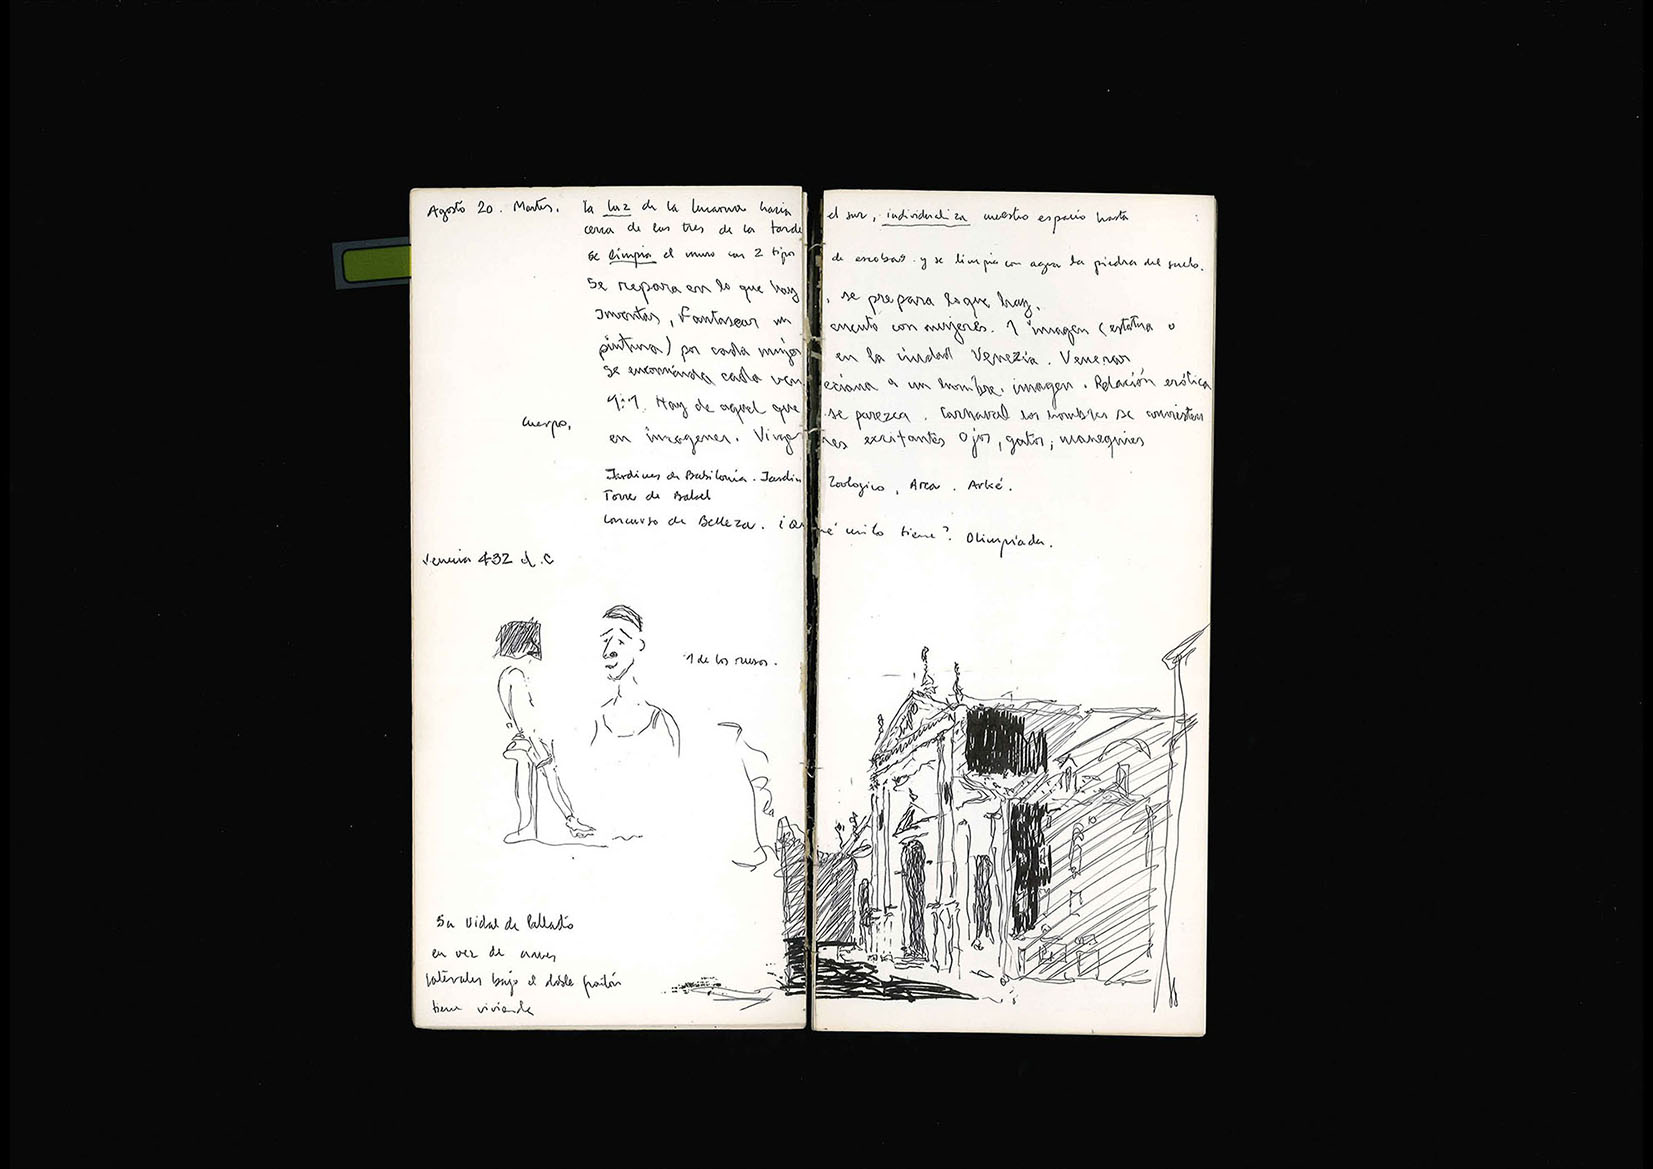 Agosto 20. Martes. la luz de la lucarna hacia el sur, individualiza nuestro espacio hasta
cerca de las tres de la tarde
se limpia el muro con 2 tipos de escobas y se limpia con agua la piedra del suelo.
Se repara en lo que hay, se prepara lo que hay.
Inventar, Fantasear un cuento con mujeres. 1 imagen (estatua o
pintura) por cada mujer en la ciudad Venezia. Venerar
se encomienda cada veneciana a un hombre. imagen. Relación erótica
1:1. Hay de aquel que se parezca. Carnaval los hombres se convierten
cuerpo,
en imagenes. Virgenes excitantes Ojos, gatos, maniquies
Jardines de Babilonia. Jardin Zoologico, Arca. Arké.
Torre de Babel
Concurso de Belleza. ¿Qué tiene?. Olimpiada.
Venecia 432 d.C
1 de los rusos.
Sn Vidal de Palladio
en vez de naves
laterales bajo el doble frontón
tiene vivienda